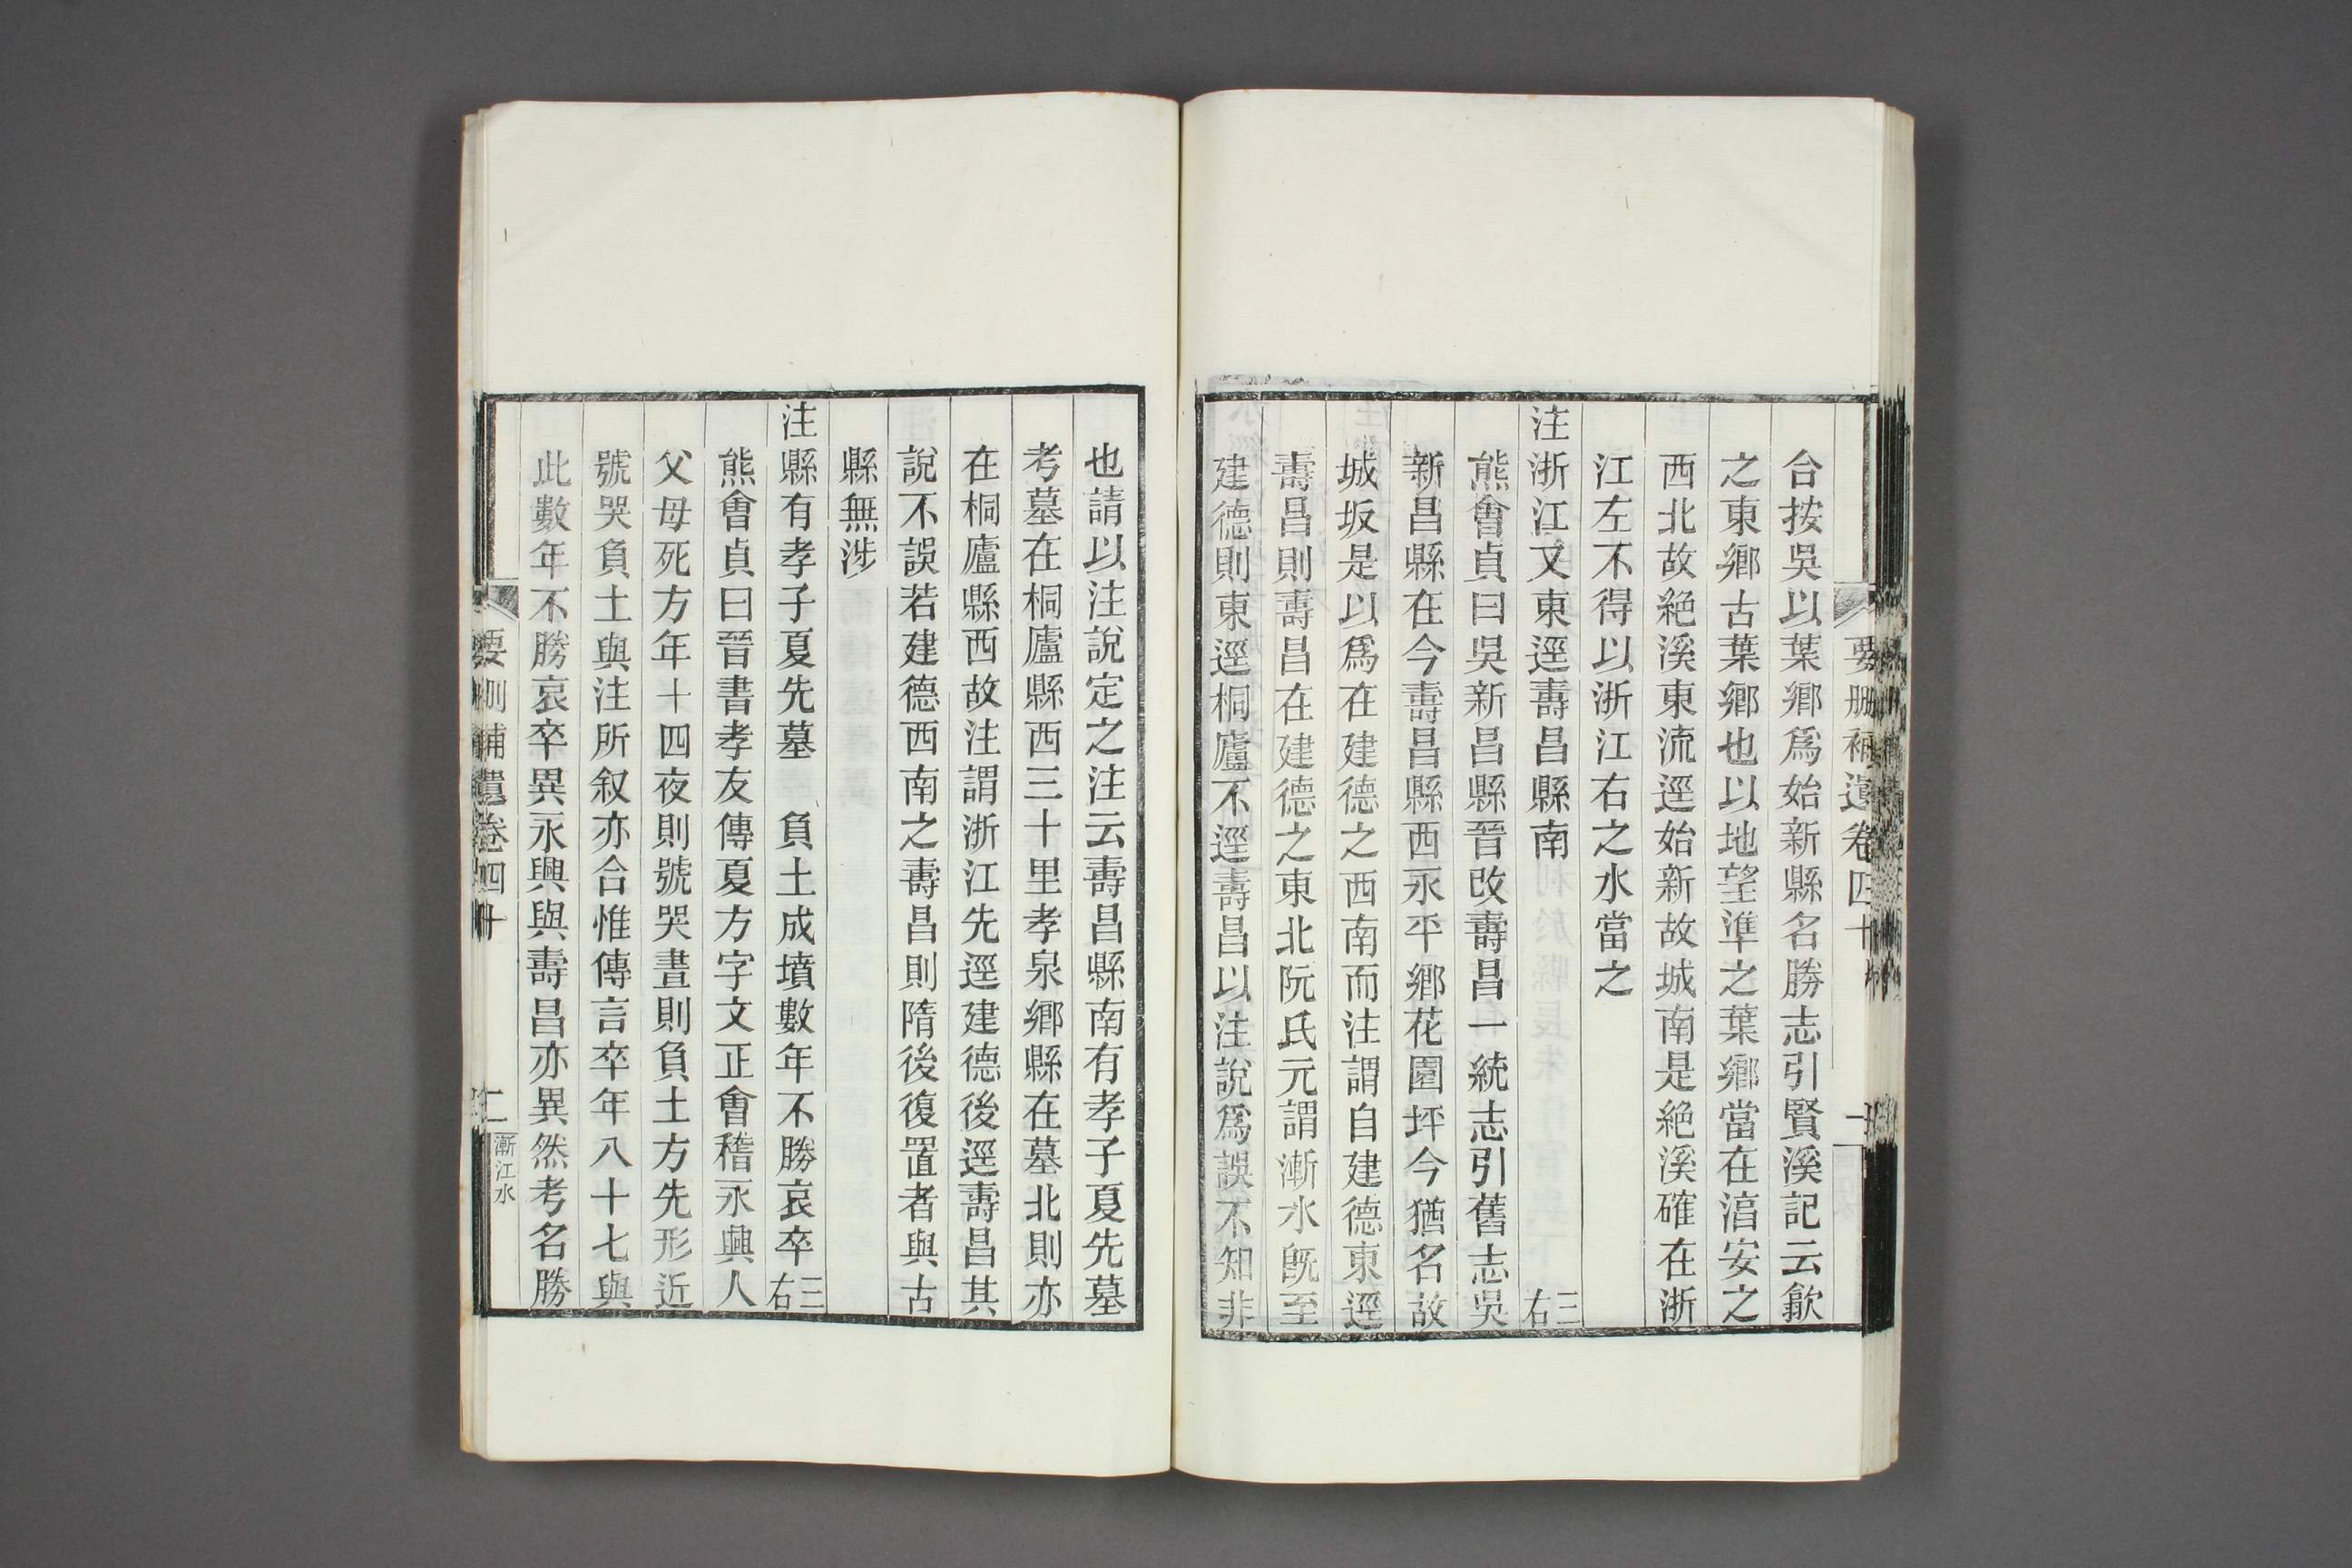 合按吳以葉鄉爲始新縣名勝志引賢溪記云歙
之東鄉古葉鄉也以地望準之葉鄉當在湻安之
西北故絶溪東流逕始新故城南是絶溪確在浙
江左不得以浙江右之水當之
注浙江又東逕壽昌縣南 三右
熊會貞曰吳新昌縣晉改壽昌一統志引舊志吳
新昌縣在今壽昌縣西永平鄉花園坪今猶名故
城坂是以爲在建德之西南而注謂自建德東逕
壽昌則壽昌在建德之東北阮氏元謂漸水旣至
建德則東逕桐廬不逕壽昌以注說爲誤不知非
要刪補遺卷四十 一
也請以注說定之注云壽昌縣南有孝子夏先墓
考墓在桐廬縣西三十里孝泉鄉縣在墓北則亦
在桐廬縣西故注謂浙江先逕建德後逕壽昌其
說不誤若建德西南之壽昌則隋後復置者與古
縣無涉
注縣有孝子夏先墓 負土成墳數年不勝哀卒 三右
熊會貞曰晉書孝友傳夏方字文正會稽永興人
父母死方年十四夜則號哭晝則負土方先形近
號哭負土與注所叙亦合惟傳言卒年八十七與
此數年不勝哀卒異永興與壽昌亦異然考名勝
要刪補遺卷四十 二 漸江水